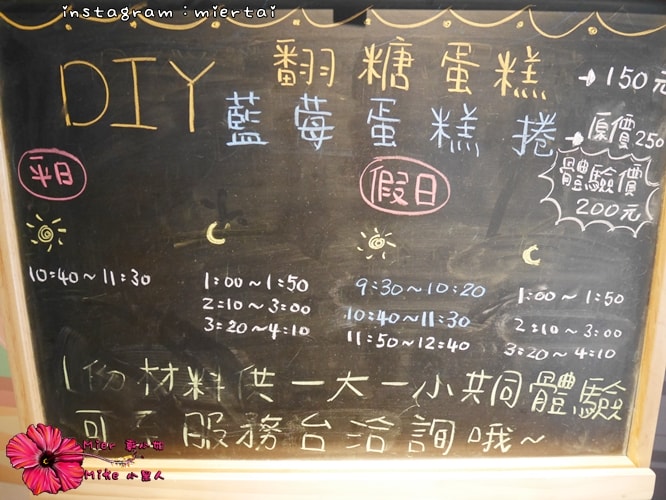 instagram：miertai
DIY 翻糖蛋糕 → 150元
藍莓蛋糕捲 → 原價250
體驗價
200元
平日 假日
10:40~11:30
1:00~1:50
2:10~3:00
3:20~4:10
9:30~10:20
10:40~11:30
11:50~12:40
1:00~1:50
2:10~3:00
3:20~4:10
1份材料供一大一小共同體驗
可 服務台洽詢哦~
Mier
Mike 小星人